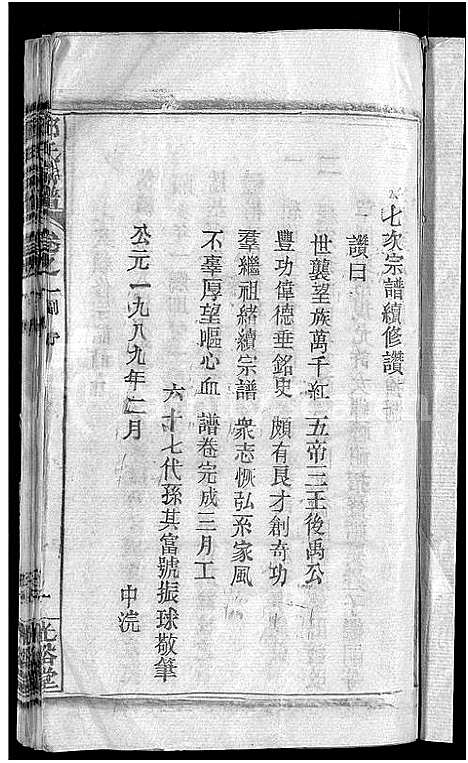 七次宗譜續修讚
讚曰
世襲望族萬千紅 五帝三王後禹公
豐功偉德垂銘史 頗有良才創奇功
羣繼祖緒續宗譜 衆志恢弘系家風
不辜厚望嘔心血 譜卷完成三月工
六十七代孫其富號振球敬筆
公元一九八九年二月 中浣
氏
譜
卷之一
光裕堂